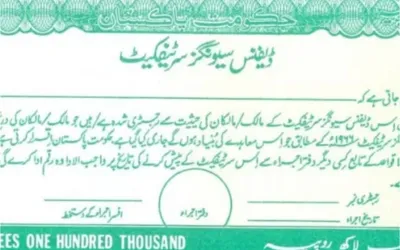 حکومت پاکستان
ڈیفنس سیونگز سرٹیفکیٹ
جاتی ہے کہ
اس ڈیفنس سیونگز سرٹیفکیٹ کے مالک/مالکان کی حیثیت سے رجسٹری شدہ ہے/ہیں جو مالک/مالکان کی
سیونگز سرٹیفکیٹ ۱۹۶۶ کے مطابق جو اس معاہدے کی بنیاد ہوں گے جاری کیا گیا ہے۔ حکومت پاکستان اقرار کرتی
قواعد کے تابع کسی دیگر دفتر اجراء سے اس سرٹیفکیٹ کے پیش کرنے کی تاریخ پر واجب الادا وہ رقم ادا کرے گی
رجسٹری نمبر
تاریخ اجراء
دفتر اجراء
افسر اجراء کے دستخط
EES ONE HUNDRED THOUSAND
لاکھ روپیہ